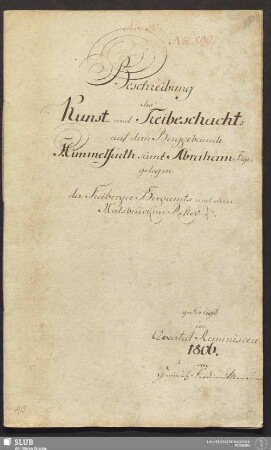 No: 500
Beschreibung
des
Kunst und Treibeschachts
auf dem Berggebäude
Himmelfarth samt Abraham Fdgr.
gelegen
der Freyberger Bergamts und dem
Halsbrückner Refier
gefertigt
im
Quartal Reminiscere
1806.
von
SLUB